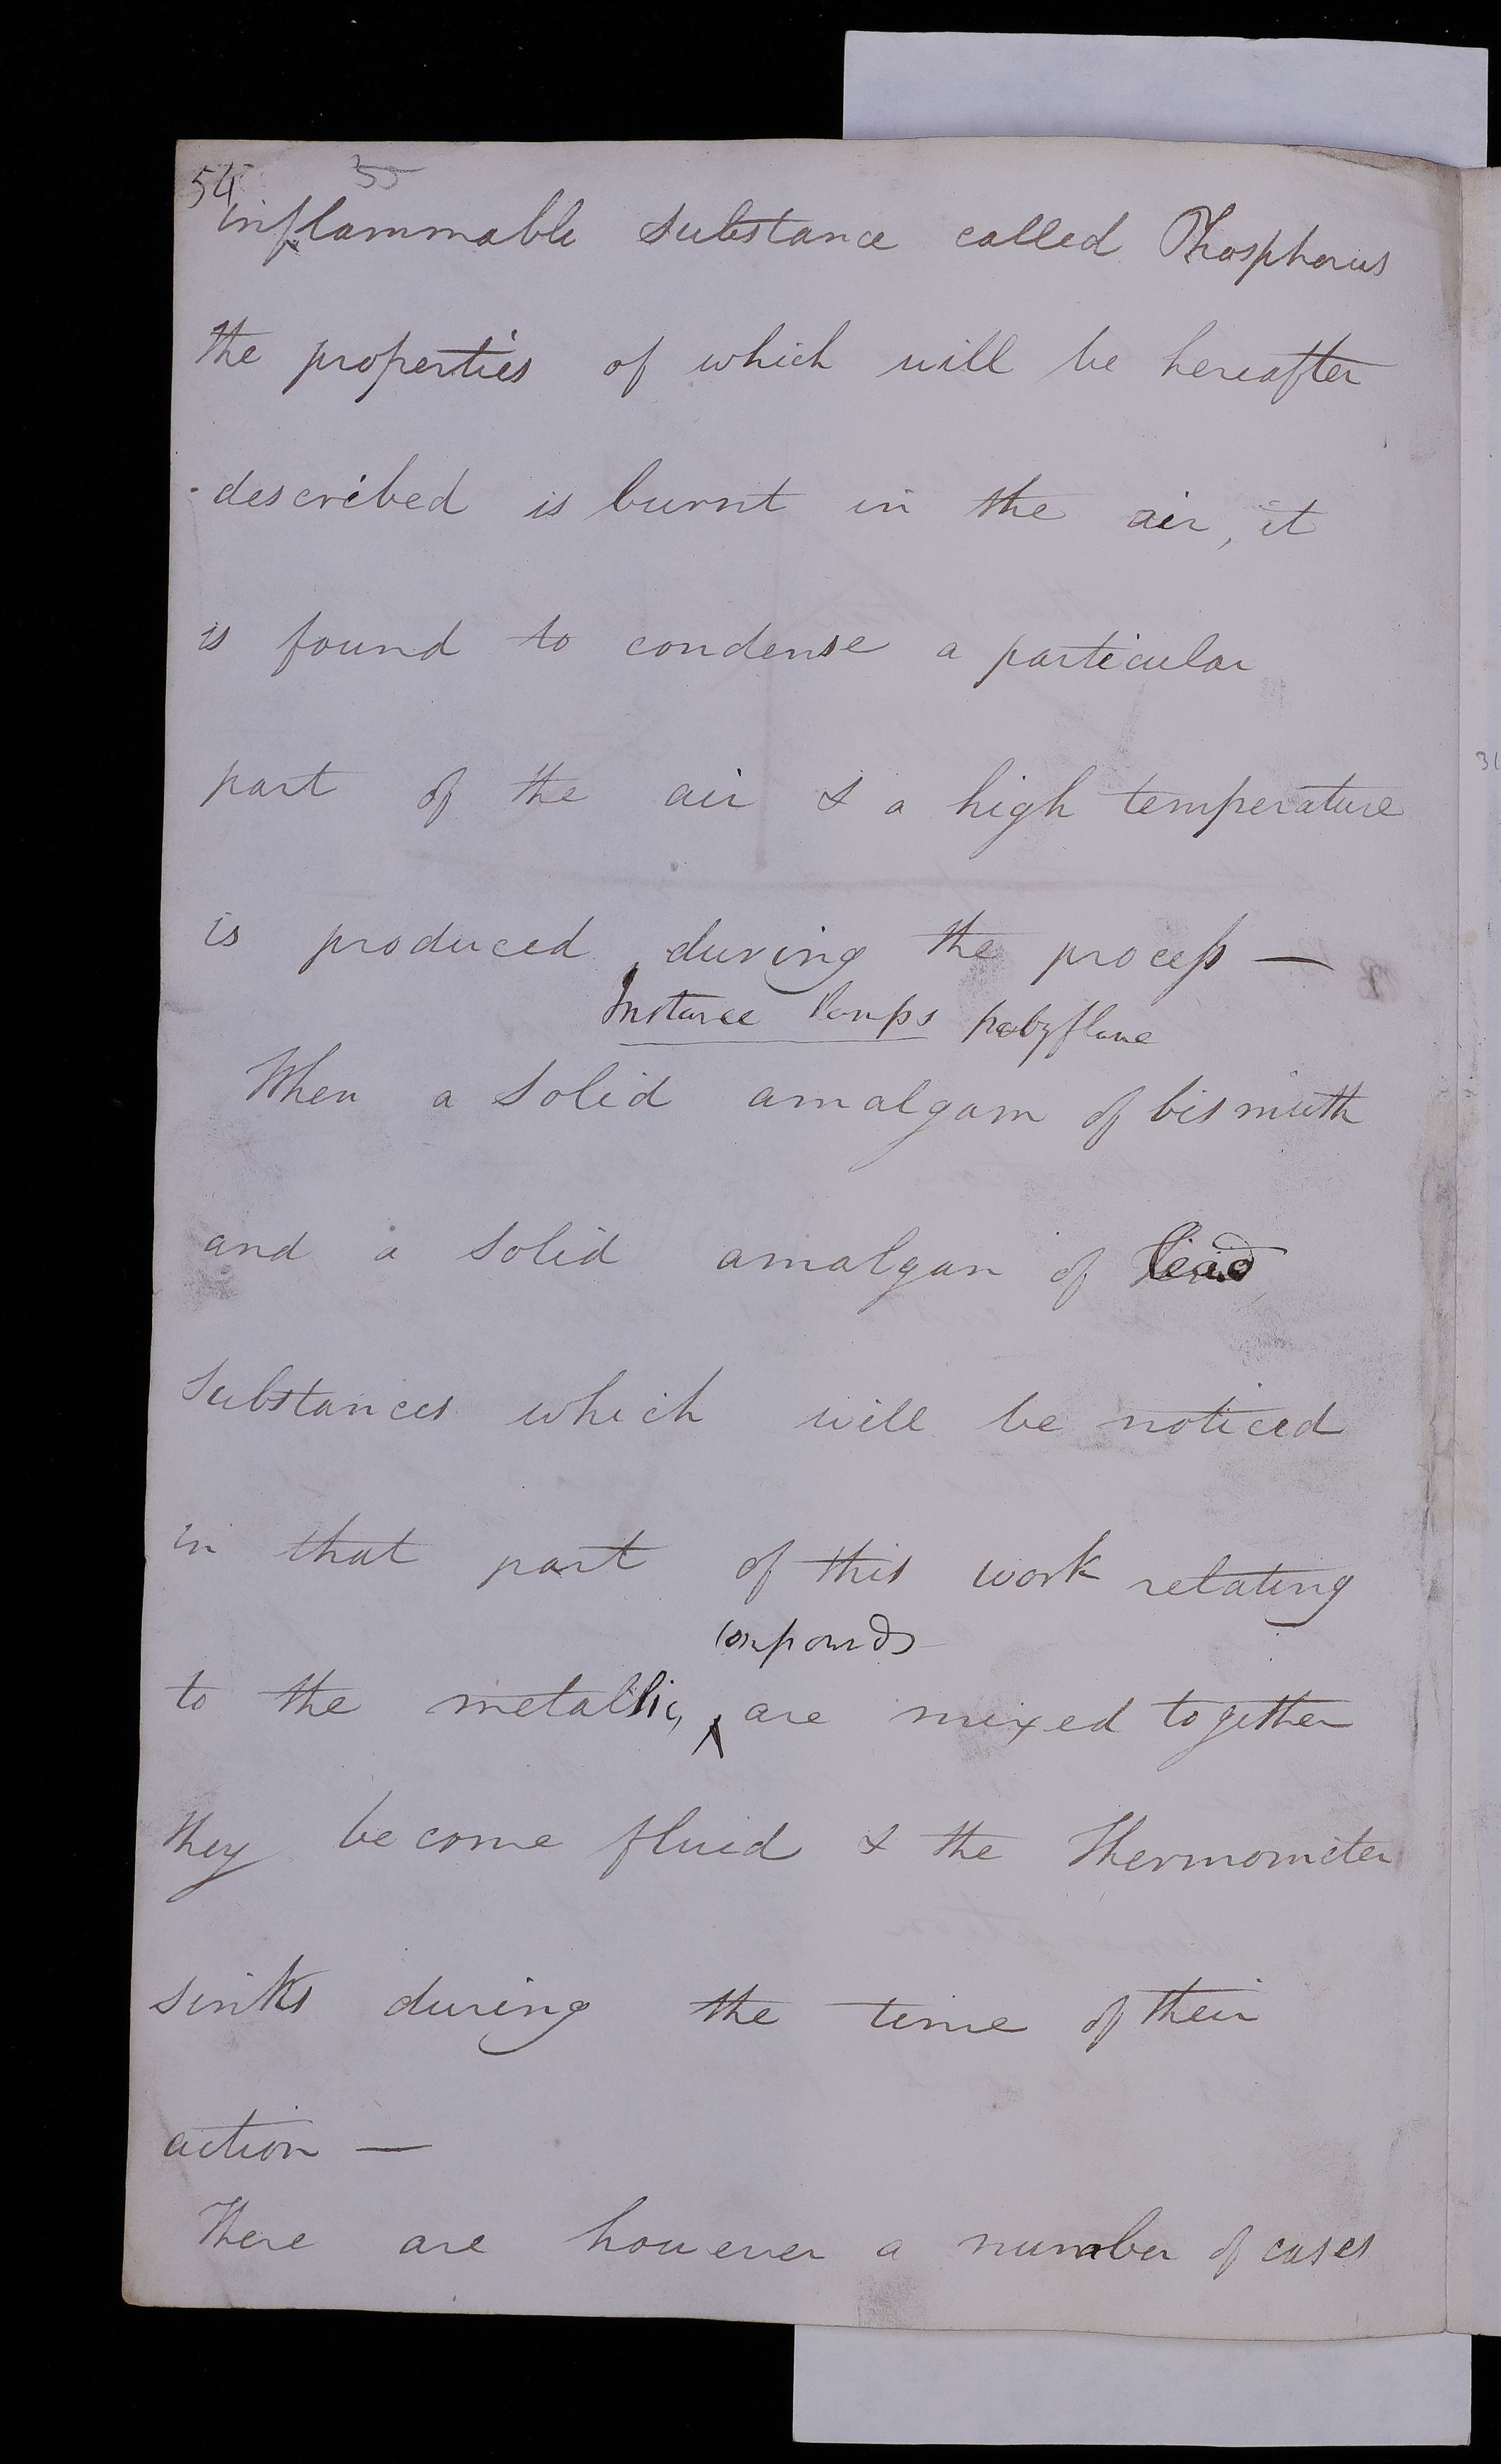 54 35
inflammable substance called Phosphorus
the properties of which will be hereafter
described is burnt in the air, it
is found to condense a particular
part of the air & a high temperature
is produced during the process —
Instance lamps
When a solid amalgam of bismuth
and a solid amalgam of lead
substances which will be noticed
in that part of this work relating
compounds
to the metallic, are mixed together
they become fluid & the Thermometer
sinks during the time of their
action —
There are however a number of cases